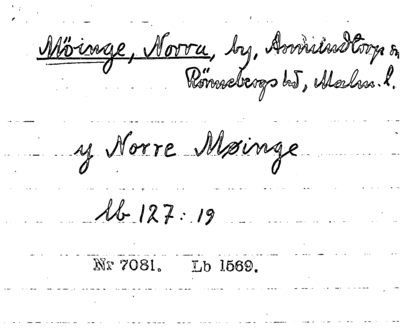 Möinge, Norra, by, Annelöv
Rönnebergs hd, Malm. l.
y Norre Møinge
lb 127: 19
Nr 7081. Lb 1569.